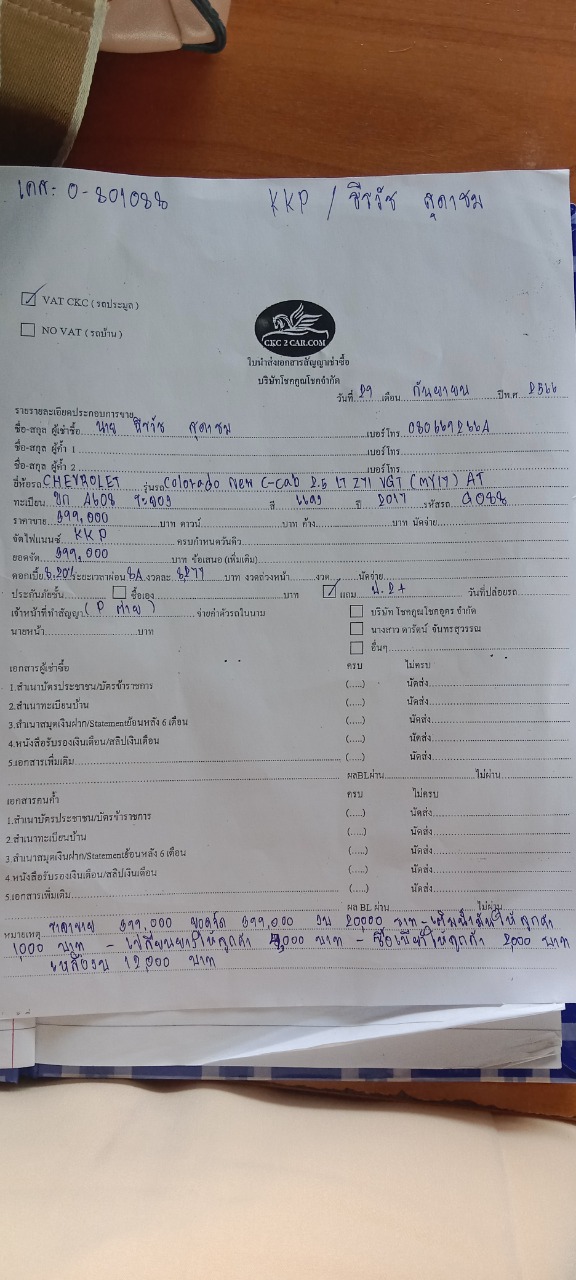 เคส: 0-801088 KKP / ธีรวัช สุดาชม
VAT CKC ( รถประมูล )
NO VAT ( รถบ้าน )
CKC 2 CAR.COM
ใบนำส่งเอกสารสัญญาเช่าซื้อ
บริษัทโชคคูณโชคจำกัด
วันที่ 29 เดือน กันยายน ปีพ.ศ. 2566
รายรายละเอียดประกอบการขาย
ชื่อ-สกุล ผู้เช่าซื้อ นาย ธีรวัช สุดาชม เบอร์โทร
ชื่อ-สกุล ผู้ค้ำ 1 เบอร์โทร
ชื่อ-สกุล ผู้ค้ำ 2 เบอร์โทร
ยี่ห้อรถ CHEVROLET รุ่นรถ Colorado New C-Cab 2.5 LT Z71 VGT (MY17) AT
ทะเบียน สี แดง ปี 2017 รหัสรถ 9088
ราคาขาย 399,000 บาท ดาวน์ บาท ค้าง บาท นัดจ่าย
จัดไฟแนนซ์ KKP ครบกำหนดวันดิว
ยอดจัด 399,000 บาท ข้อเสนอ (เพิ่มเติม)
ดอกเบี้ย 8.20% ระยะเวลาผ่อน 84 งวดละ 8,277 บาท งวดล่วงหน้า งวด นัดจ่าย
ประกันภัยชั้น ซื้อเอง บาท แถม ป.2+ วันที่ปล่อยรถ
เจ้าหน้าที่ทำสัญญา จ่ายค่าตัวรถในนาม บริษัท โชคคูณโชคคูตร จำกัด
นายหน้า บาท นางสาว ดารัตน์ จันทรสุวรรณ
อื่นๆ
เอกสารผู้เช่าซื้อ ครบ ไม่ครบ
1.สำเนาบัตรประชาชน/บัตรข้าราชการ (.....) นัดส่ง
2.สำเนาทะเบียนบ้าน (.....) นัดส่ง
3.สำเนาสมุดเงินฝาก/Statementย้อนหลัง 6 เดือน (.....) นัดส่ง
4.หนังสือรับรองเงินเดือน/สลิปเงินเดือน (.....) นัดส่ง
5.เอกสารเพิ่มเติม (.....) นัดส่ง
ผลBLผ่าน ไม่ผ่าน
เอกสารคนค้ำ ครบ ไม่ครบ
1.สำเนาบัตรประชาชน/บัตรข้าราชการ (.....) นัดส่ง
2.สำเนาทะเบียนบ้าน (.....) นัดส่ง
3.สำเนาสมุดเงินฝาก/Statementย้อนหลัง 6 เดือน (.....) นัดส่ง
4.หนังสือรับรองเงินเดือน/สลิปเงินเดือน (.....) นัดส่ง
5.เอกสารเพิ่มเติม (.....) นัดส่ง
ผล BL ผ่าน ไม่ผ่าน
หมายเหตุ ราคาขาย 399,000 ยอดจัด 399,000 งบ 20,000 บาท - เติมน้ำมันให้ลูกค้า
1,000 บาท - เปลี่ยนยางให้ลูกค้า บาท - ซื้อเบียร์ให้ลูกค้า 2,000 บาท
เหลืองบ 12,000 บาท